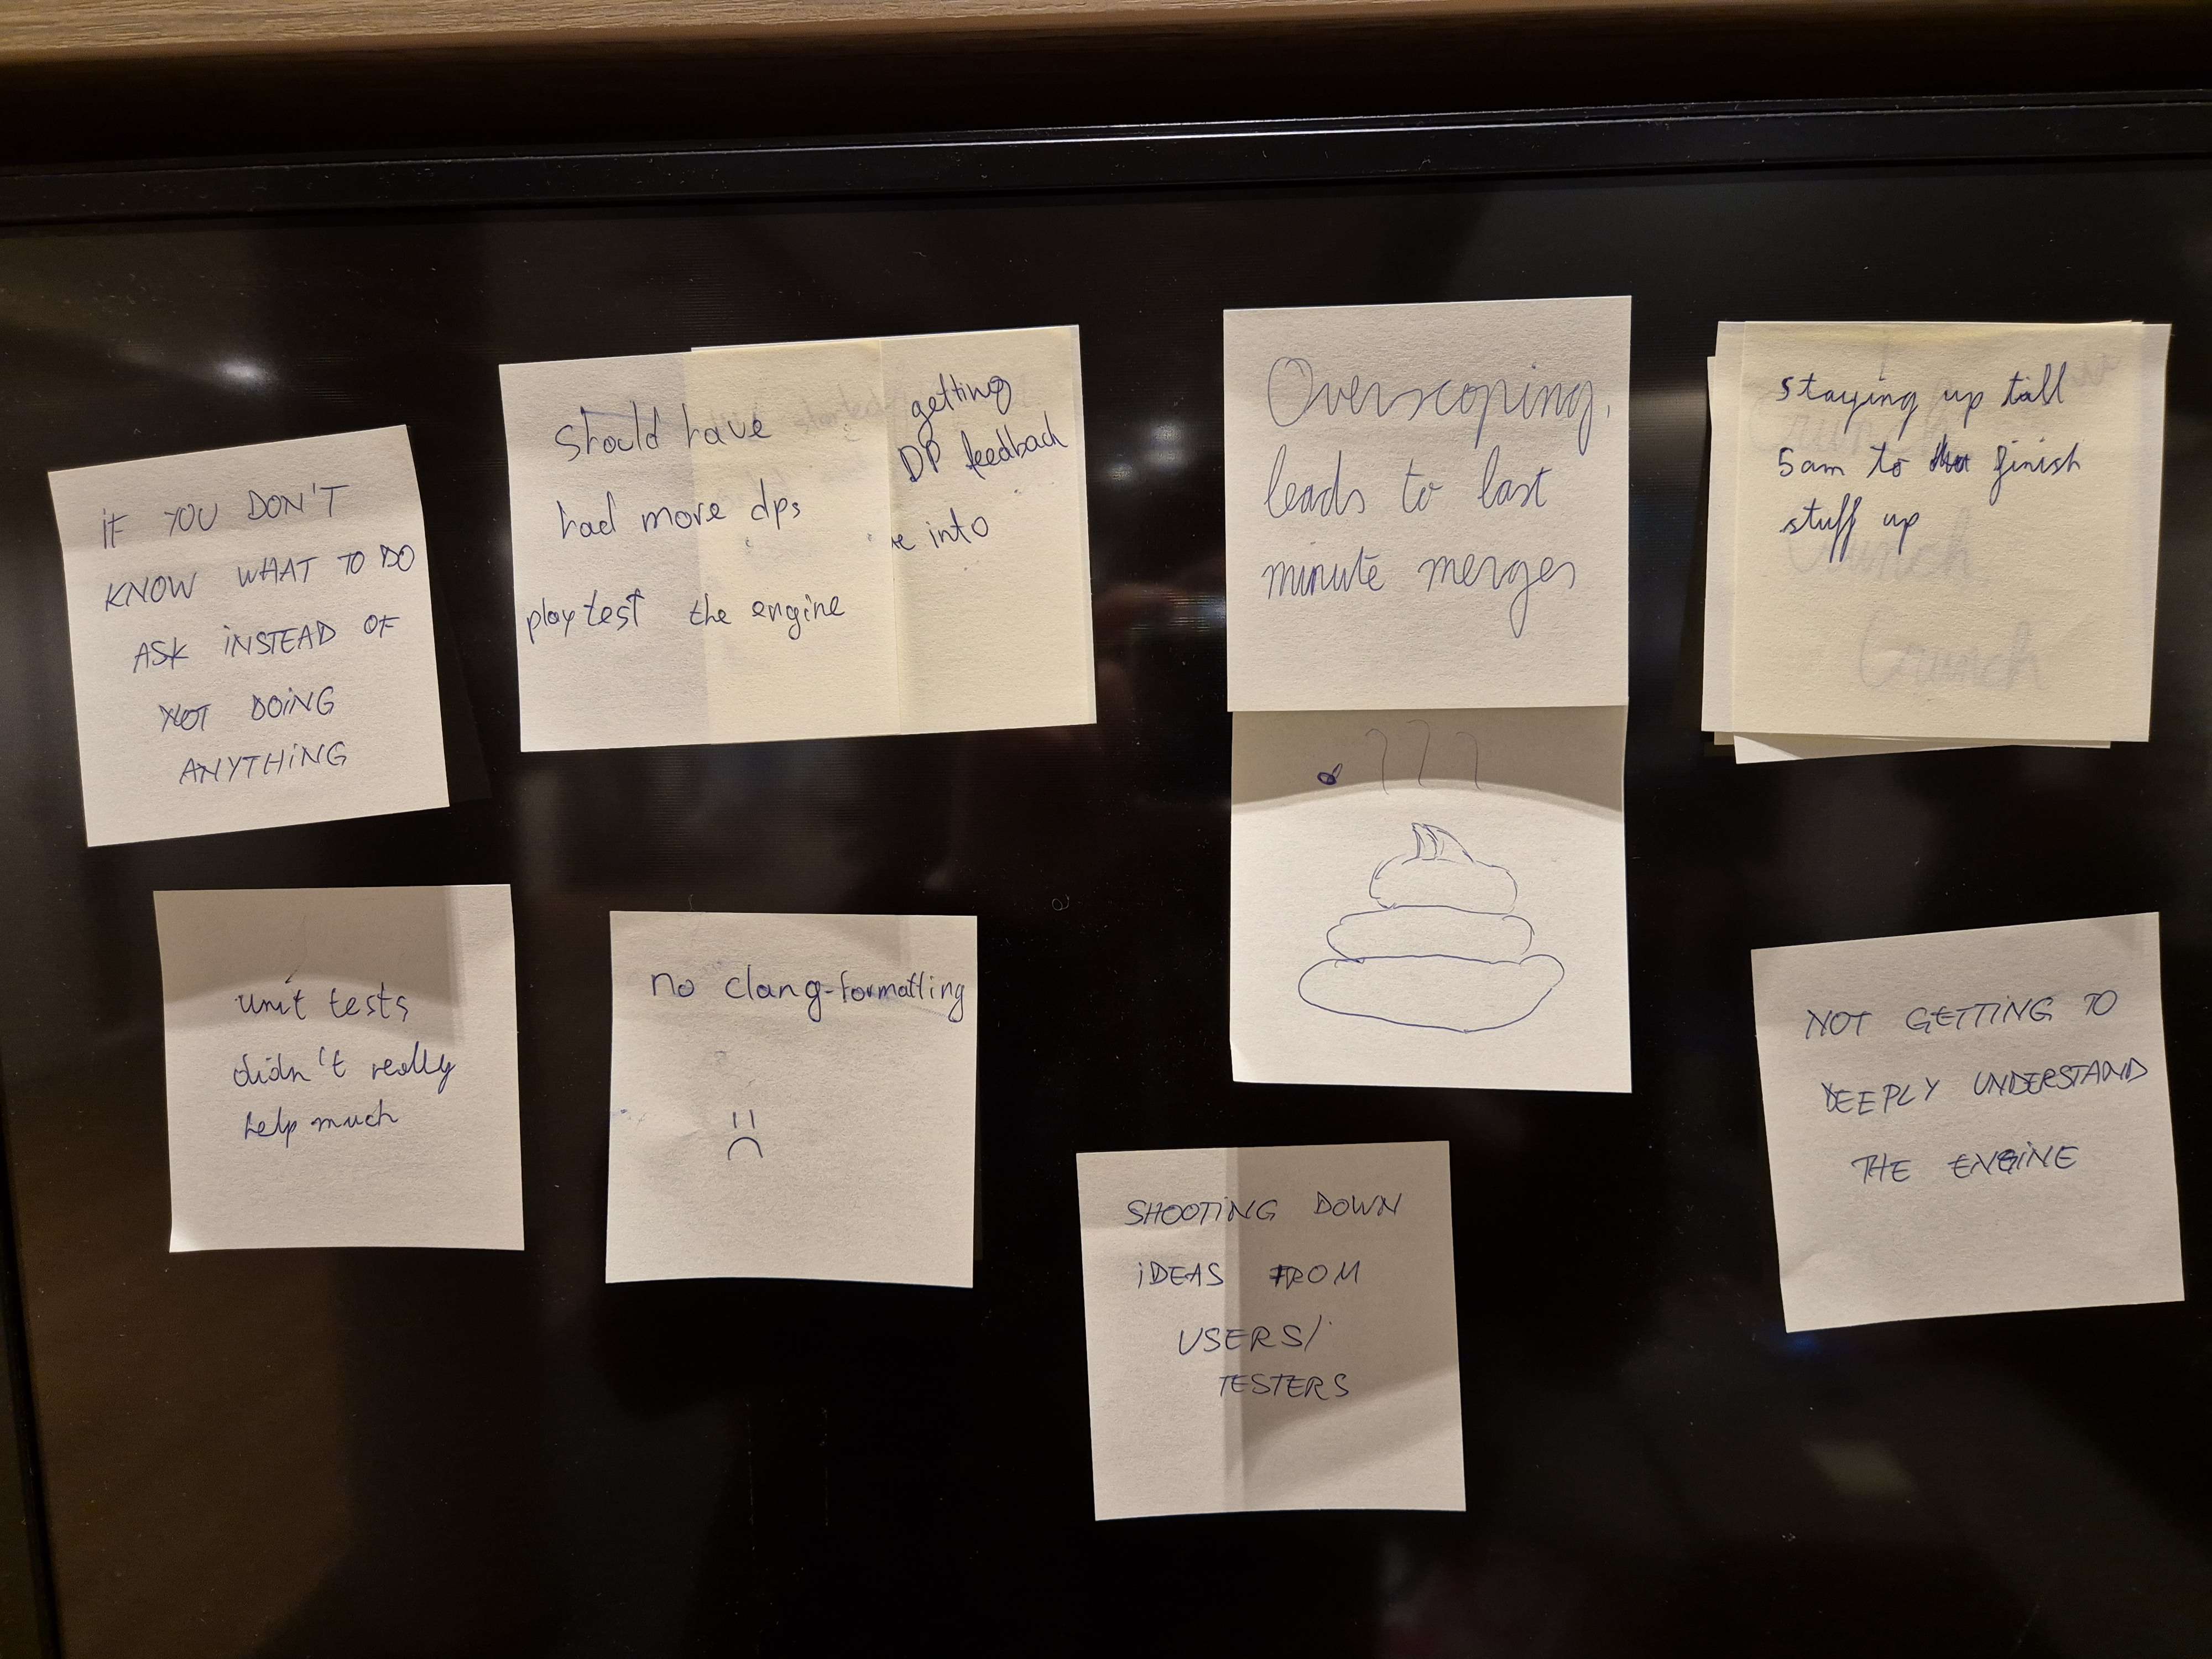 iF YOU DON'T
KNOW WHAT TO DO
ASK iNSTEAD OF
NOT DOiNG
ANYTHiNG
should have
had more dps
playtest the engine
getting
DP feedback
into
Overscoping,
leads to last
minute merges
staying up till
5am to finish
stuff up
Crunch
Crunch
unit tests
didn't really
help much
no clang-formatting
SHOOTiNG DOWN
iDEAS FROM
USERS/
TESTERS
NOT GETTiNG TO
DEEPLY UNDERSTAND
THE ENGiNE